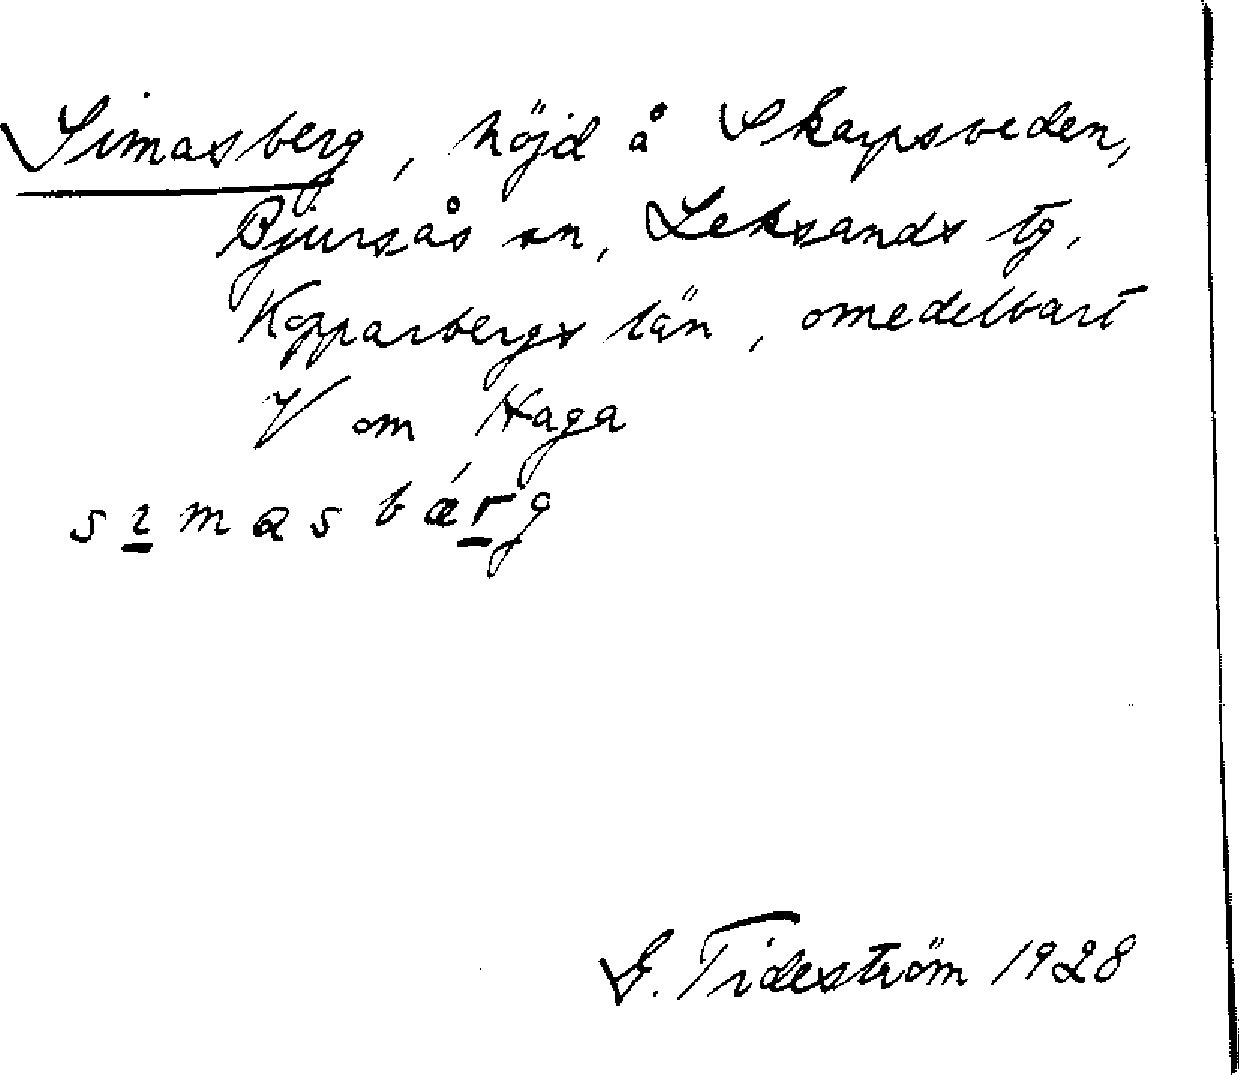 Simasberg, höjd å Skarpsveden,
Bjursås sn, Leksands tg.
Kopparbergs län, omedelbart
V om Haga
sımasbárg
G. Tideström 1928